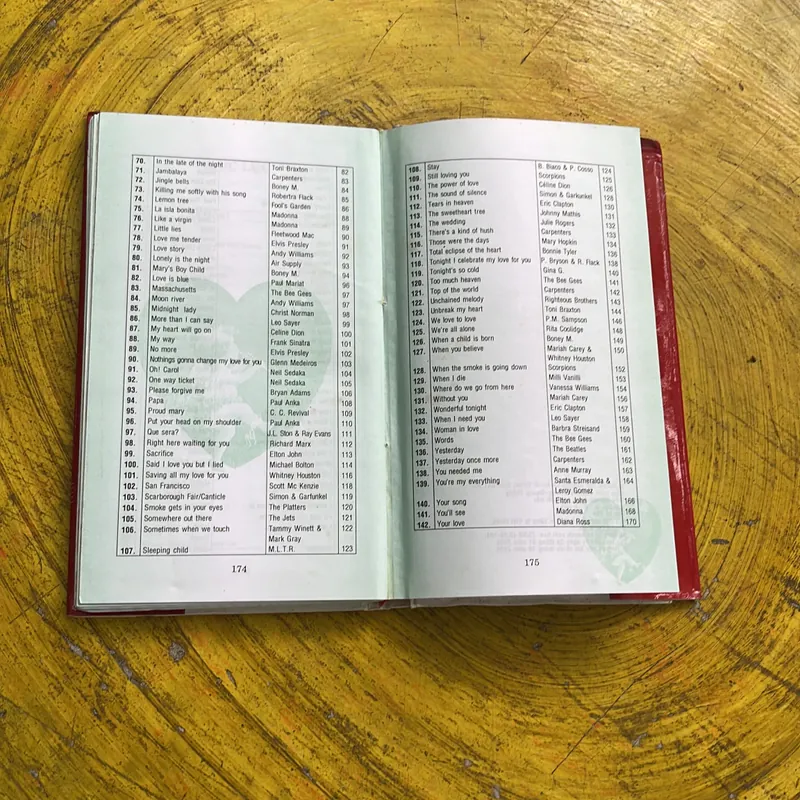 70. In the late of the night Toni Braxton 82
71. Jambalaya Carpenters 83
72. Jingle bells Boney M. 84
73. Killing me softly with his song Robertra Flack 85
74. Lemon tree Fool's Garden 86
75. La isla bonita Madonna 88
76. Like a virgin Madonna 89
77. Little lies Fleetwood Mac 90
78. Love me tender Elvis Presley 91
79. Love story Andy Williams 92
80. Lonely is the night Air Supply 93
81. Mary's Boy Child Boney M. 94
82. Love is blue Paul Mariat 96
83. Massachusetts The Bee Gees 97
84. Moon river Andy Williams 97
85. Midnight lady Christ Norman 98
86. More than I can say Leo Sayer 99
87. My heart will go on Céline Dion 100
88. My way Frank Sinatra 101
89. No more Elvis Presley 102
90. Nothings gonna change my love for you Glenn Medeiros 103
91. Oh! Carol Neil Sedaka 104
92. One way ticket Neil Sedaka 105
93. Please forgive me Bryan Adams 106
94. Papa Paul Anka 108
95. Proud mary C. C. Revival 109
96. Put your head on my shoulder Paul Anka 110
97. Que sera? J.L. Ston & Ray Evans 111
98. Right here waiting for you Richard Marx 112
99. Sacrifice Elton John 113
100. Said I love you but I lied Michael Bolton 114
101. Saving all my love for you Whitney Houston 116
102. San Francisco Scott Mc Kenzie 118
103. Scarborough Fair/Canticle Simon & Garfunkel 119
104. Smoke gets in your eyes The Platters 120
105. Somewhere out there The Jets 121
106. Sometimes when we touch Tammy Winett & 122
Mark Gray
107. Sleeping child M.L.T.R. 123
174
108. Stay B. Biaco & P. Cosso 124
109. Still loving you Scorpions 125
110. The power of love Céline Dion 126
111. The sound of silence Simon & Garkunkel 128
112. Tears in heaven Eric Clapton 130
113. The sweetheart tree Johnny Mathis 131
114. The wedding Julie Rogers 132
115. There's a kind of hush Carpenters 133
116. Those were the days Mary Hopkin 134
117. Total eclipse of the heart Bonnie Tyler 136
118. Tonight I celebrate my love for you P. Bryson & R. Flack 138
119. Tonight's so cold Gina G. 140
120. Too much heaven The Bee Gees 141
121. Top of the world Carpenters 142
122. Unchained melody Righteous Brothers 143
123. Unbreak my heart Toni Braxton 144
124. We love to love P.M. Sampson 146
125. We're all alone Rita Coolidge 148
126. When a child is born Boney M. 149
127. When you believe Mariah Carey & 150
Whitney Houston
128. When the smoke is going down Scorpions 152
129. When I die Milli Vanilli 153
130. Where do we go from here Vanessa Williams 154
131. Without you Mariah Carey 156
132. Wonderful tonight Eric Clapton 157
133. When I need you Leo Sayer 158
134. Woman in love Barbra Streisand 159
135. Words The Bee Gees 160
136. Yesterday The Beatles 161
137. Yesterday once more Carpenters 162
138. You needed me Anne Murray 163
139. You're my everything Santa Esmeralda & 164
Leroy Gomez
140. Your song Elton John 166
141. You'll see Madonna 168
142. Your love Diana Ross 170
175